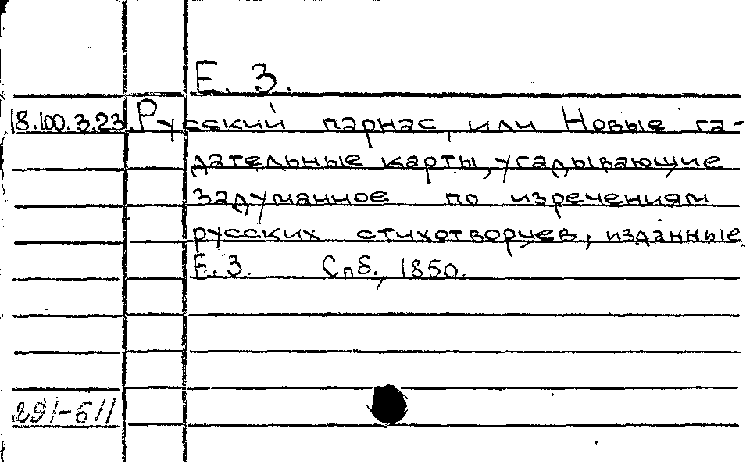 Е. З.
18.100.3.23. Русский парнас, или Новые га-
дательные карты, угадывающие
задуманное по изречениям
русских стихотворцев, изданные
Е. З. Спб., 1850.
291-611